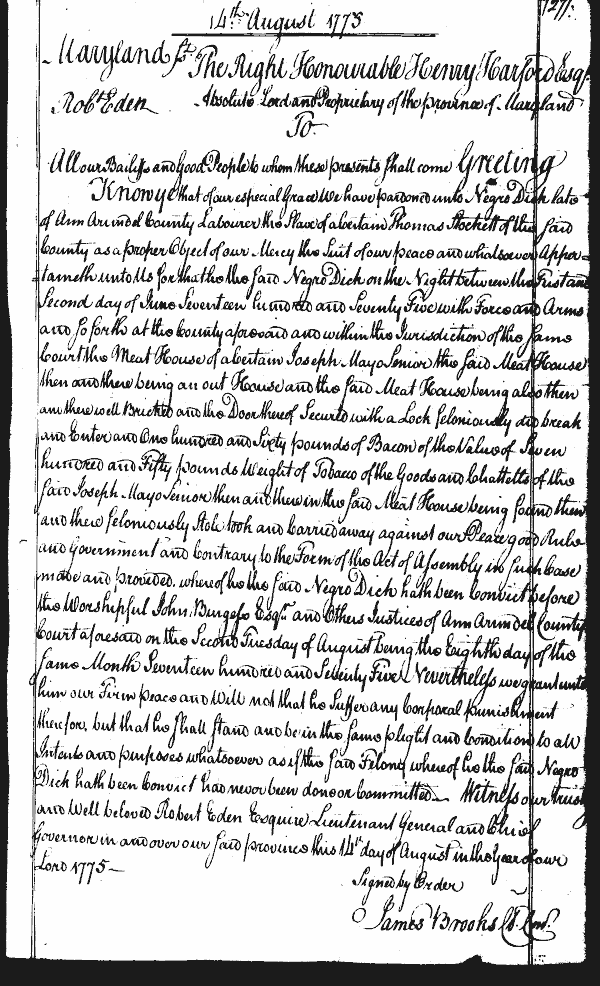 127.
14th August 1775
Maryland Sc.t The Right Honourable Henry Harford Esqr
Robt Eden Absolute Lord and Proprietary of the province of Maryland
To
All our Bailiffs and Good People to whom these presents shall come Greeting
Know ye that of our especial Grace We have pardoned unto Negro Dick late
of Ann Arundel County Labourer the Slave of a Certain Thomas Stockett of the said
County as a proper Object of our Mercy the Suit of our peace and whatsoever Apper=
taineth unto Us for that he the said Negro Dick on the Night between the First and
Second day of June Seventeen hundred and Seventy Five with Force and Arms
and so forth at the County aforesaid and within the Jurisdiction of the same
Court the Meat House of a Certain Joseph Mayo Senior the said Meat House
then and there being an out House and the said Meat House being also then
and there well Bricked and the Door thereof Secured with a Lock feloniously did break
and Enter and One hundred and Sixty pounds of Bacon of the Value of Seven
hundred and Fifty pounds Weight of Tobacco of the Goods and Chattells of the
said Joseph Mayo Senior then and there in the said Meat House being found then
and there feloniously Stole took and Carried away against our Peace good Rule
and Government and Contrary to the Form of the Act of Assembly in such Case
made and provided. whereof he the said Negro Dick hath been Convict before
the Worshipful John Burgess Esqr and Others Justices of Ann Arundel County
Court aforesaid on the Second Tuesday of August being the Eighth day of the
same Month Seventeen hundred and Seventy Five Nevertheless we grant unto
him our Firm peace and Will not that he Suffer any Corporal punishment
therefor, but that he shall stand and be in the same plight and Condition to all
Intents and purposes whatsoever as if the said Felony whereof he the said Negro
Dick hath been Convict had never been done or Committed Witness our trusty
and Well beloved Robert Eden Esquire Lieutenant General and Chief
Governor in and over our said province this 14th day of August in the Year of our
Lord 1775
Signed by Order
James Brooks Cl. Con.